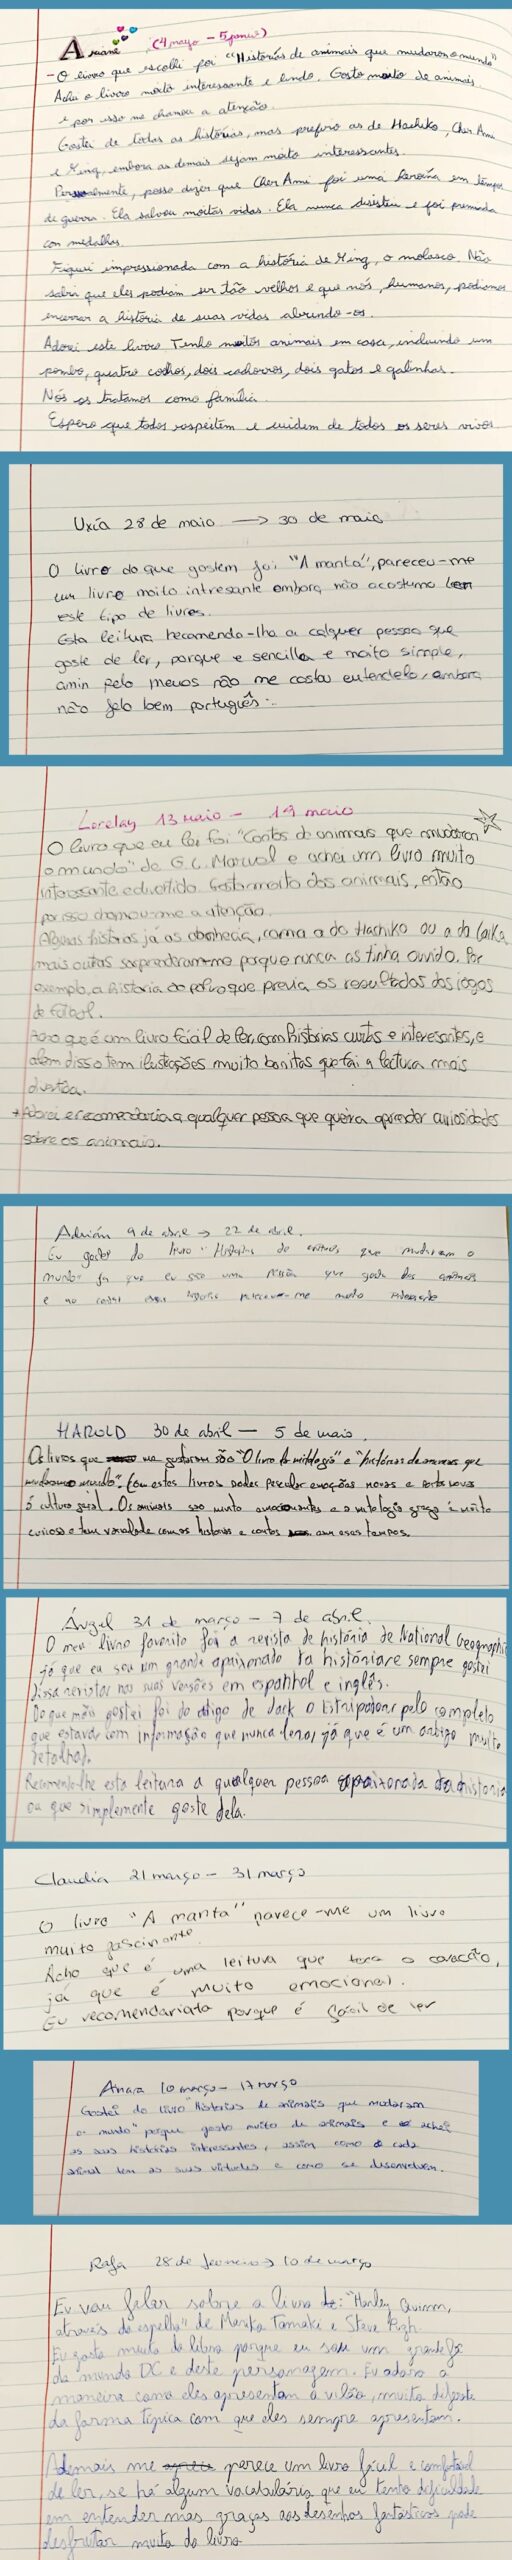 Ariane (4 mayo - 5 junio)
- O livro que escolhi foi "Historias de animais que mudaron o mundo"
Acho o livro moito interessante e lindo. Gosto moito de animais
e por isso me chamou a atenção.
Gostei de todas as histórias, mas prefiro as de Hachiko, Cher Ami
e Ming, embora as demais sejam moito interessantes.
Personalmente, posso dizer que Cher Ami foi uma heroína em tempos
de guerra. Ela salvou moitas vidas. Ela nunca desistiu e foi premiada
con medalhas.
Fiquei impressionada com a história de Ming, o molusco. Não
sabia que eles podiam ser tão velhos e que nós, humanos, podíamos
encerrar a história de suas vidas abrindo-os.
Adorei este livro. Tenho moitos animais em casa, incluindo um
pombo, quatro coelhos, dois cachorros, dois gatos e galinhas.
Nós os tratamos como família.
Espero que todos respeitem e cuidem de todos os seres vivos
Uxía 28 de maio → 30 de maio
O livro do que gostem foi "A manta", pareceu-me
um livro moito intresante embora não acostumo ler
este tipo de livros.
Esta leitura recomendo-lha a calquer pessoa que
goste de ler, porque e sencilla e moito simple,
amin pelo menos não me costou entendelo, embora
não falo bem português.
Lorelay 13 maio - 19 maio
O livro que eu ler foi "Contos de animais que mudaron
o mundo" de G.L. Marvel e achei um livro muito
interessante e divertido. Gosto moito dos animais, então
por isso chamou-me a atenção.
Algunas histórias já as conhecia, como a do Hachiko ou a da Laika,
mais outras sorprendiram-me porque nunca as tinha ouvido. Por
exemplo, a historia do polvo que previa os resultados dos jogos
de fútbol.
Acho que é um livro fácil de ler, com historias curtas e interesantes, e
além disso tem ilustrações muito bonitas que fai a lectura mais
divertida.
+ Adorei e recomendaria a qualquer pessoa que queira aprender curiosidades
sobre os animais.
Adrián 9 de abril → 22 de abril.
Eu gostei do livro "Historias de animais que mudaram o
mundo" ja que eu são uma pessoa que gosta dos animais
e ao contar essas historias pareceu-me muito interesante
HAROLD 30 de abril — 5 de maio
Os livros que me gustaram são "O livro da mitologia" e "histórias de animais que
mudaram o mundo". Com estes livros podes perceber emoções novas e
á cultura geral. Os animais são muito emocionantes e a mitologia grega é muito
curioso e tem variedade com as historias e contos em esos tempos.
Ángel 31 de março - 7 de abril.
O meu livro favorito foi a revista de história de National Geographic
já que eu sou um grande apaixonado da história e sempre gostei
dessa revistar nas suas versões em espanhol e inglês.
Do que mais gostei foi do artigo de Jack o Estripador pelo completo
que estava com informação que nunca lera, já que é um artigo muito
detalhado.
Recomendo-lhe esta leitura a qualquer pessoa apaixonada da historia
ou que simplemente goste dela.
Claudia 21 março - 31 março
O livro "A manta" parece-me um livro
muito fascinante.
Acho que é uma leitura que toca o coração,
já que é muito emocional.
Eu recomendaria-o porque é fácil de ler
Ainara 10 março - 17 março
Gostei do livro "Historias de animais que mudaram
o mundo" porque gosto muito de animais e achei
as suas histórias interessantes, assim como cada
animal tem as suas virtudes e como se desenvolvem.
Rafa 28 de fevereiro → 10 de março
Eu vou falar sobre a livro de: "Harley Quinn,
através do espelho" de Mariko Tamaki e Steve Pugh.
Eu gosto muito do libro porque eu sou um grande fã
do mundo DC e deste personagem. Eu adoro a
maneira como eles apresentam à vilão, muito diferente
da forma típica com que eles sempre apresentam.
Ademais me parece um livro fácil e comfortável
de ler, se há algum vocabulário que eu tenho dificuldade
em entender mas graças aos desenhos fantásticos pode
desfrutar muito do livro